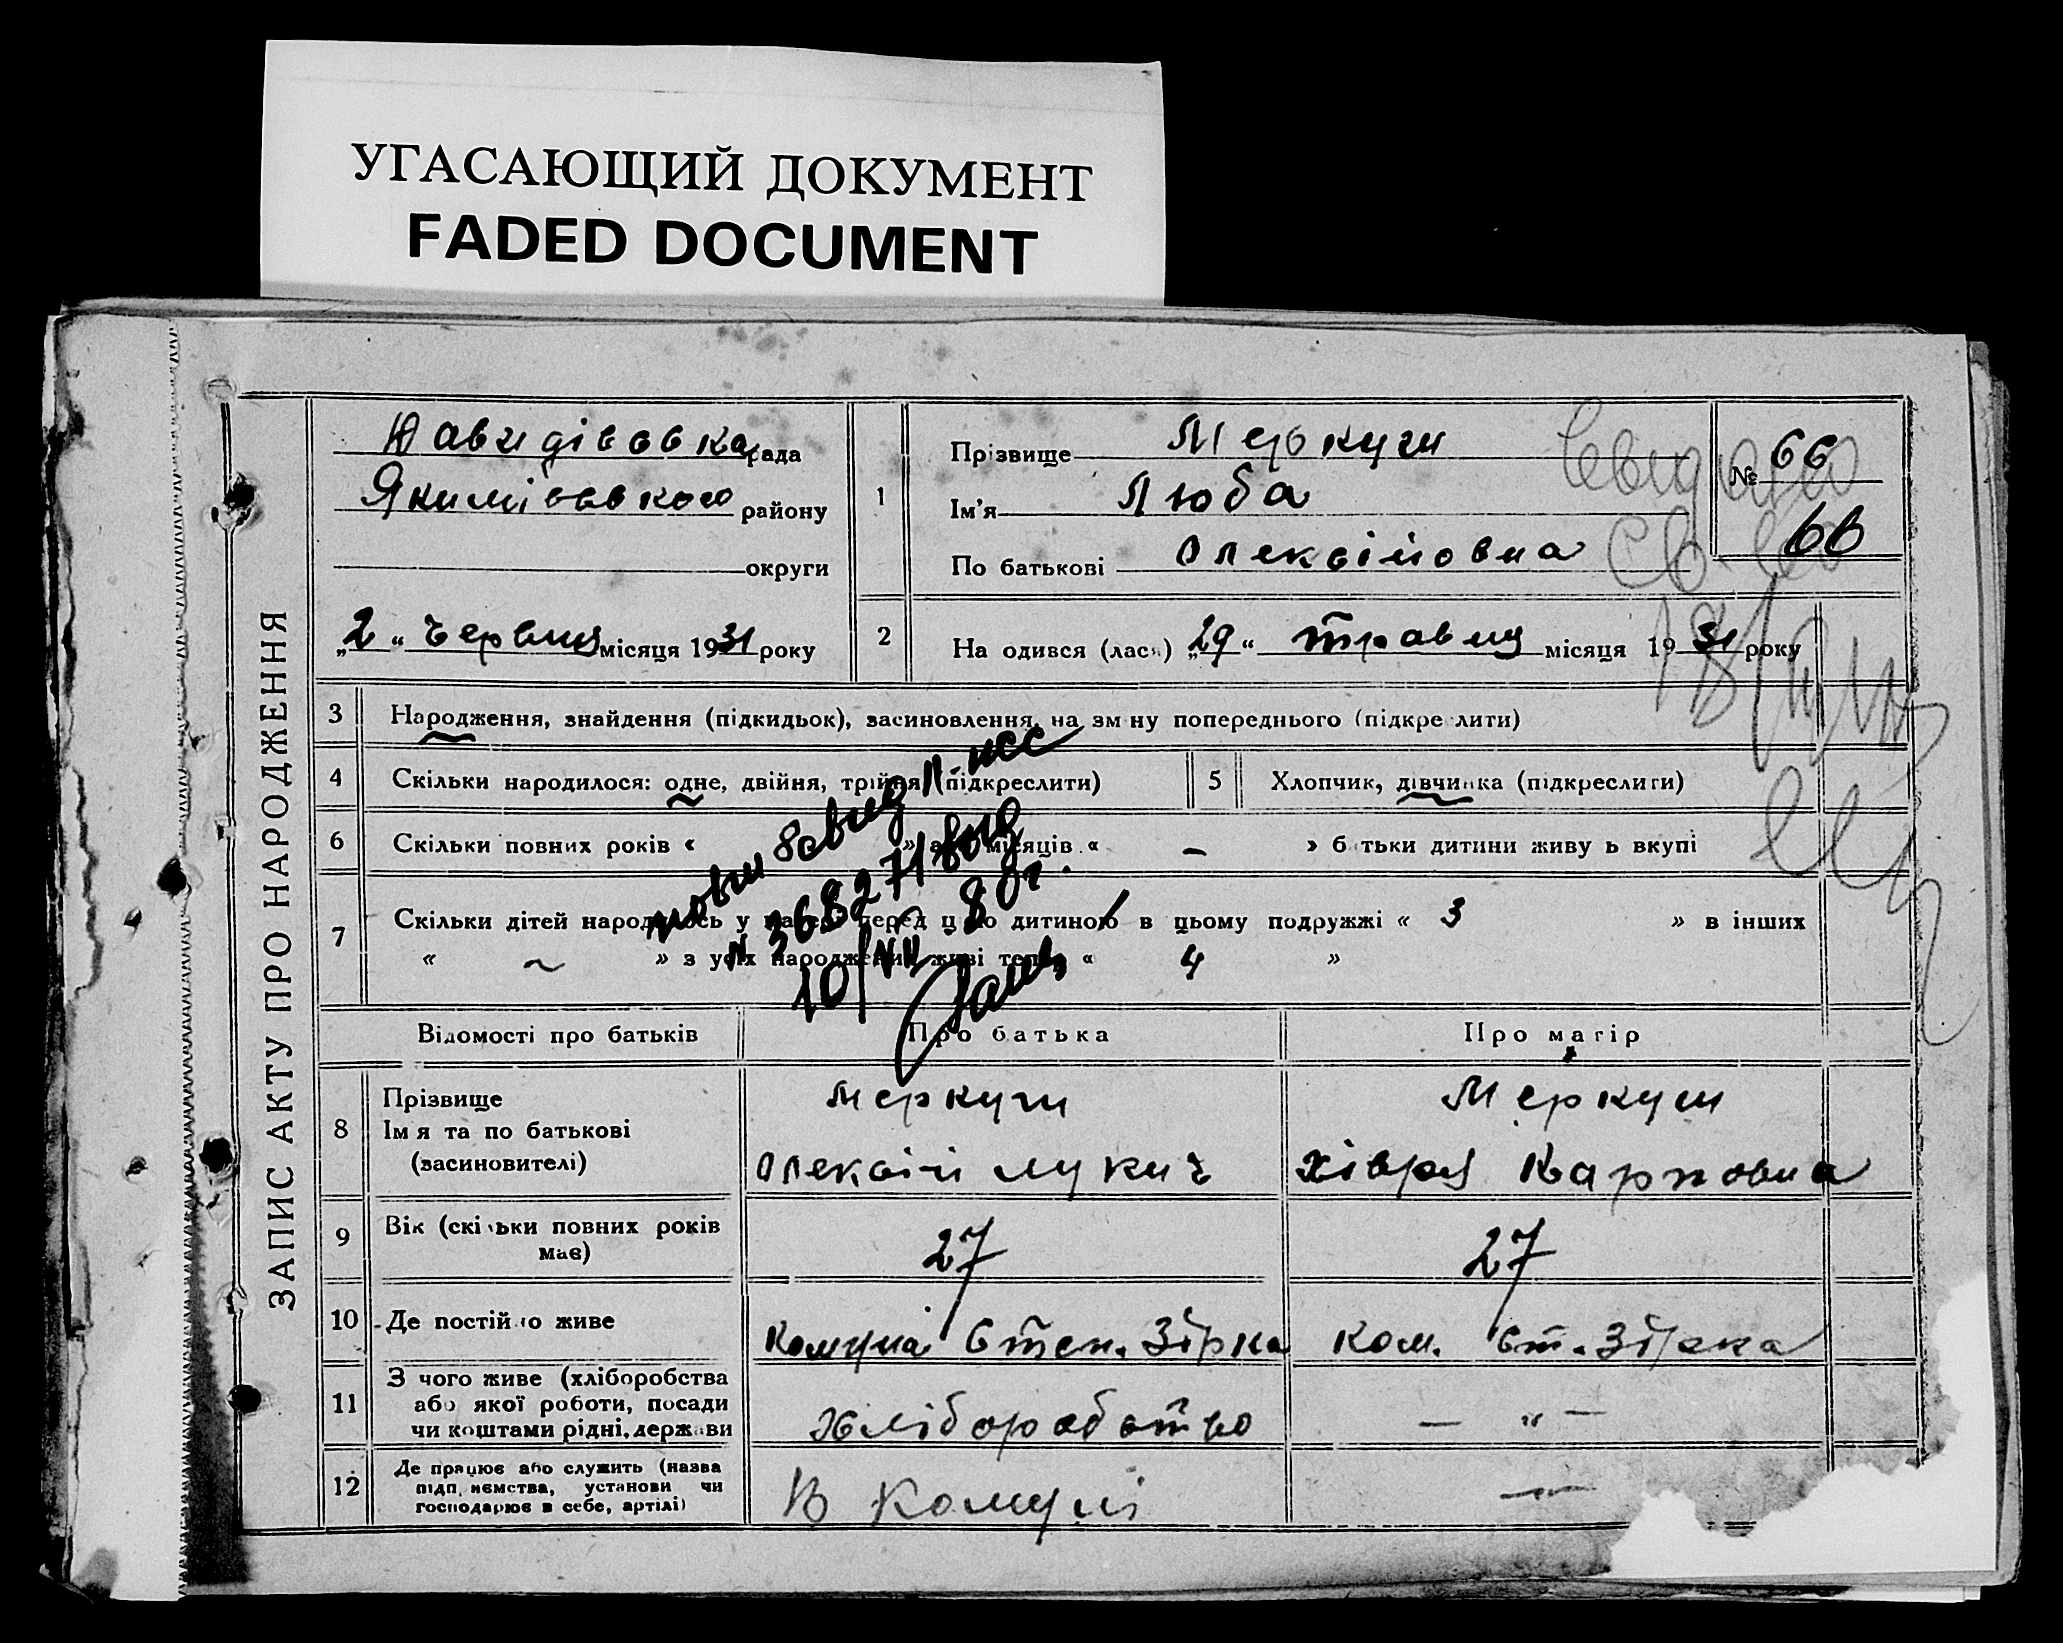 УГАСАЮЩИЙ ДОКУМЕНТ
FADED DOCUMENT
ЗАПИС АКТУ ПРО НАРОДЖЕННЯ
Давидівська рада
Якимівського району
округи
„2“ Червня місяця 1931 року
1
Прізвище Меркуш
Ім'я Люба
По батькові Олексіївна
№ 66
66
2
На одився (лась) „29“ травня місяця 1931 року
3 Народження, знайдення (підкидьок), засиновлення, на зм ну попереднього (підкре лити)
4 Скільки народилося: одне, двійня, трійня (підкреслити)
5 Хлопчик, дівчинка (підкреслити)
6 Скільки повних років « » місяців « — » б тьки дитини живу ь вкупі
7 Скільки дітей народилось у перед ц ю дитиною в цьому подружжі « 3 » в інших
« ~ » з усіх народжених живі теп « 4 »
10/VII 80г.
Відомості про батьків
Про батька
Про матір
8 Прізвище
Ім я та по батькові
(засиновителі)
Меркуш
Олексій Лукич
Меркуш
Хівря Карповна
9 Вік (скі ьки повних років
має)
27
27
10 Де постій о живе
Комуна Степ. Зірка
Ком. Ст. Зірка
11 З чого живе (хліборобства
або якої роботи, посади
чи коштами рідні, держ ви
хліборобство
— „ —
12 Де працює або служить (назва
підп, ємства, установи чи
господарює в себе, артілі)
В Комуні
—